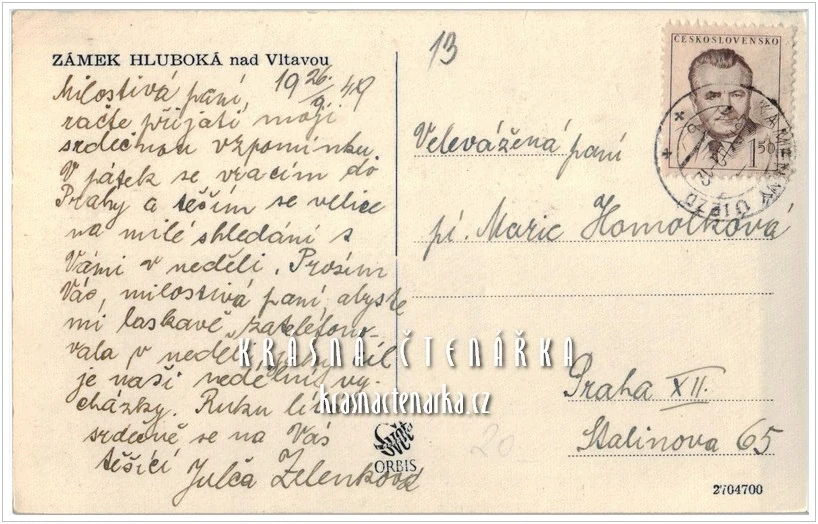 ZÁMEK HLUBOKÁ nad Vltavou
19 26./9. 49
Milostivá paní,
račte přijati moji
srdečnou vzpomínku.
V pátek se vracím do
Prahy a těším se velice
na milé shledání s
Vámi v neděli. Prosím
Vás, milostivá paní, abyste
mi laskavě zatelefono-
vala v neděli, cíl
je naší nedělní vy-
cházky. Ruku líbá
srdečně se na Vás
těšící Julča Zelenková
13
ČESKOSLOVENSKO
1.50
KAMENNÝ ÚJEZD
Velevážená paní
pí. Marie Homolková
Praha XII.
Stalinova 65
20
Svět
ORBIS
2704700
KRÁSNÁ ČTENÁŘKA
krasnactenarka.cz